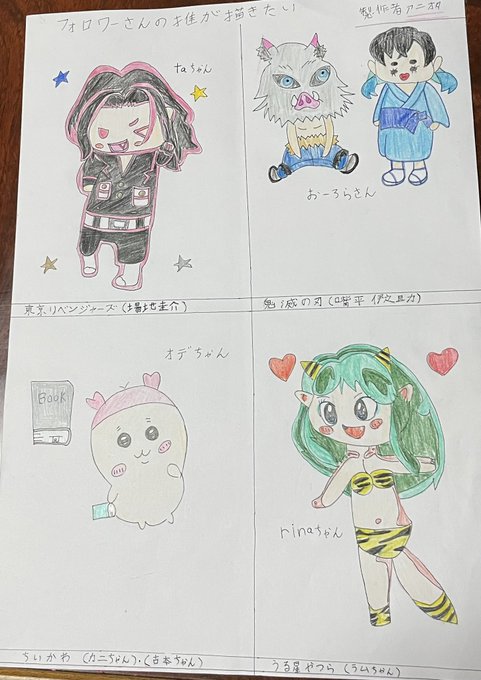 フォロワーさんの推が描きたい
製作者アニオタ
taちゃん
おーろらさん
東京リベンジャーズ (場地圭介)
鬼滅の刃 (嘴平 伊之助)
オデちゃん
BOOK
rinaちゃん
ちいかわ (カニちゃん)・(古本ちゃん)
うる星やつら (ラムちゃん)